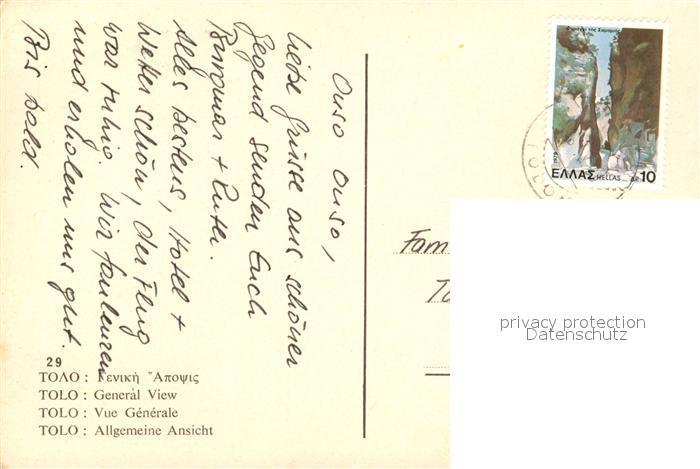 Ouso Ouso,
liebe Grüsse aus schöner
Gegend senden Euch
+
Alles bestens, Hotel +
Wetter schön, der Flug
war ruhig. Wir faulenzen
und erholen uns gut.
Bis bald.
29
ΤΟΛΟ : Γενικὴ Ἄποψις
TOLO : Generàl View
TOLO : Vue Générale
TOLO : Allgemeine Ansicht
Φαράγγι τῆς Σαμαριᾶς
1979
ΕΛΛΑΣ HELLAS ΔΡ 10
Fam
privacy protection
Datenschutz